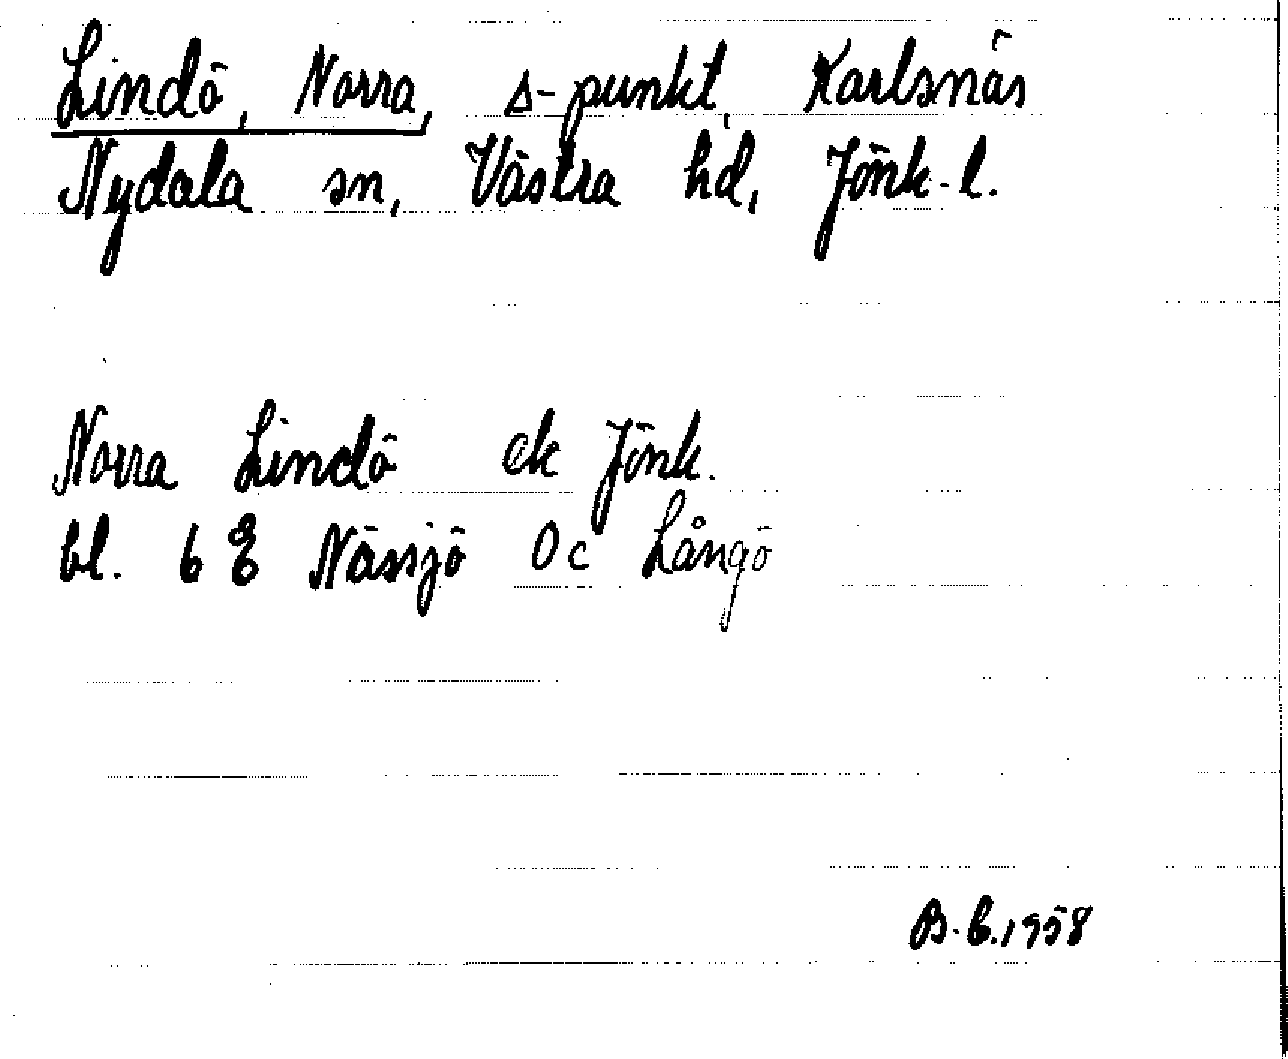 Lindö, Norra, Δ-punkt, Karlsnäs
Nydala sn, Västra hd, Jönk. l.
Norra Lindö ek Jönk.
bl. 6 E Nässjö 0c Långö
B. E. 1958